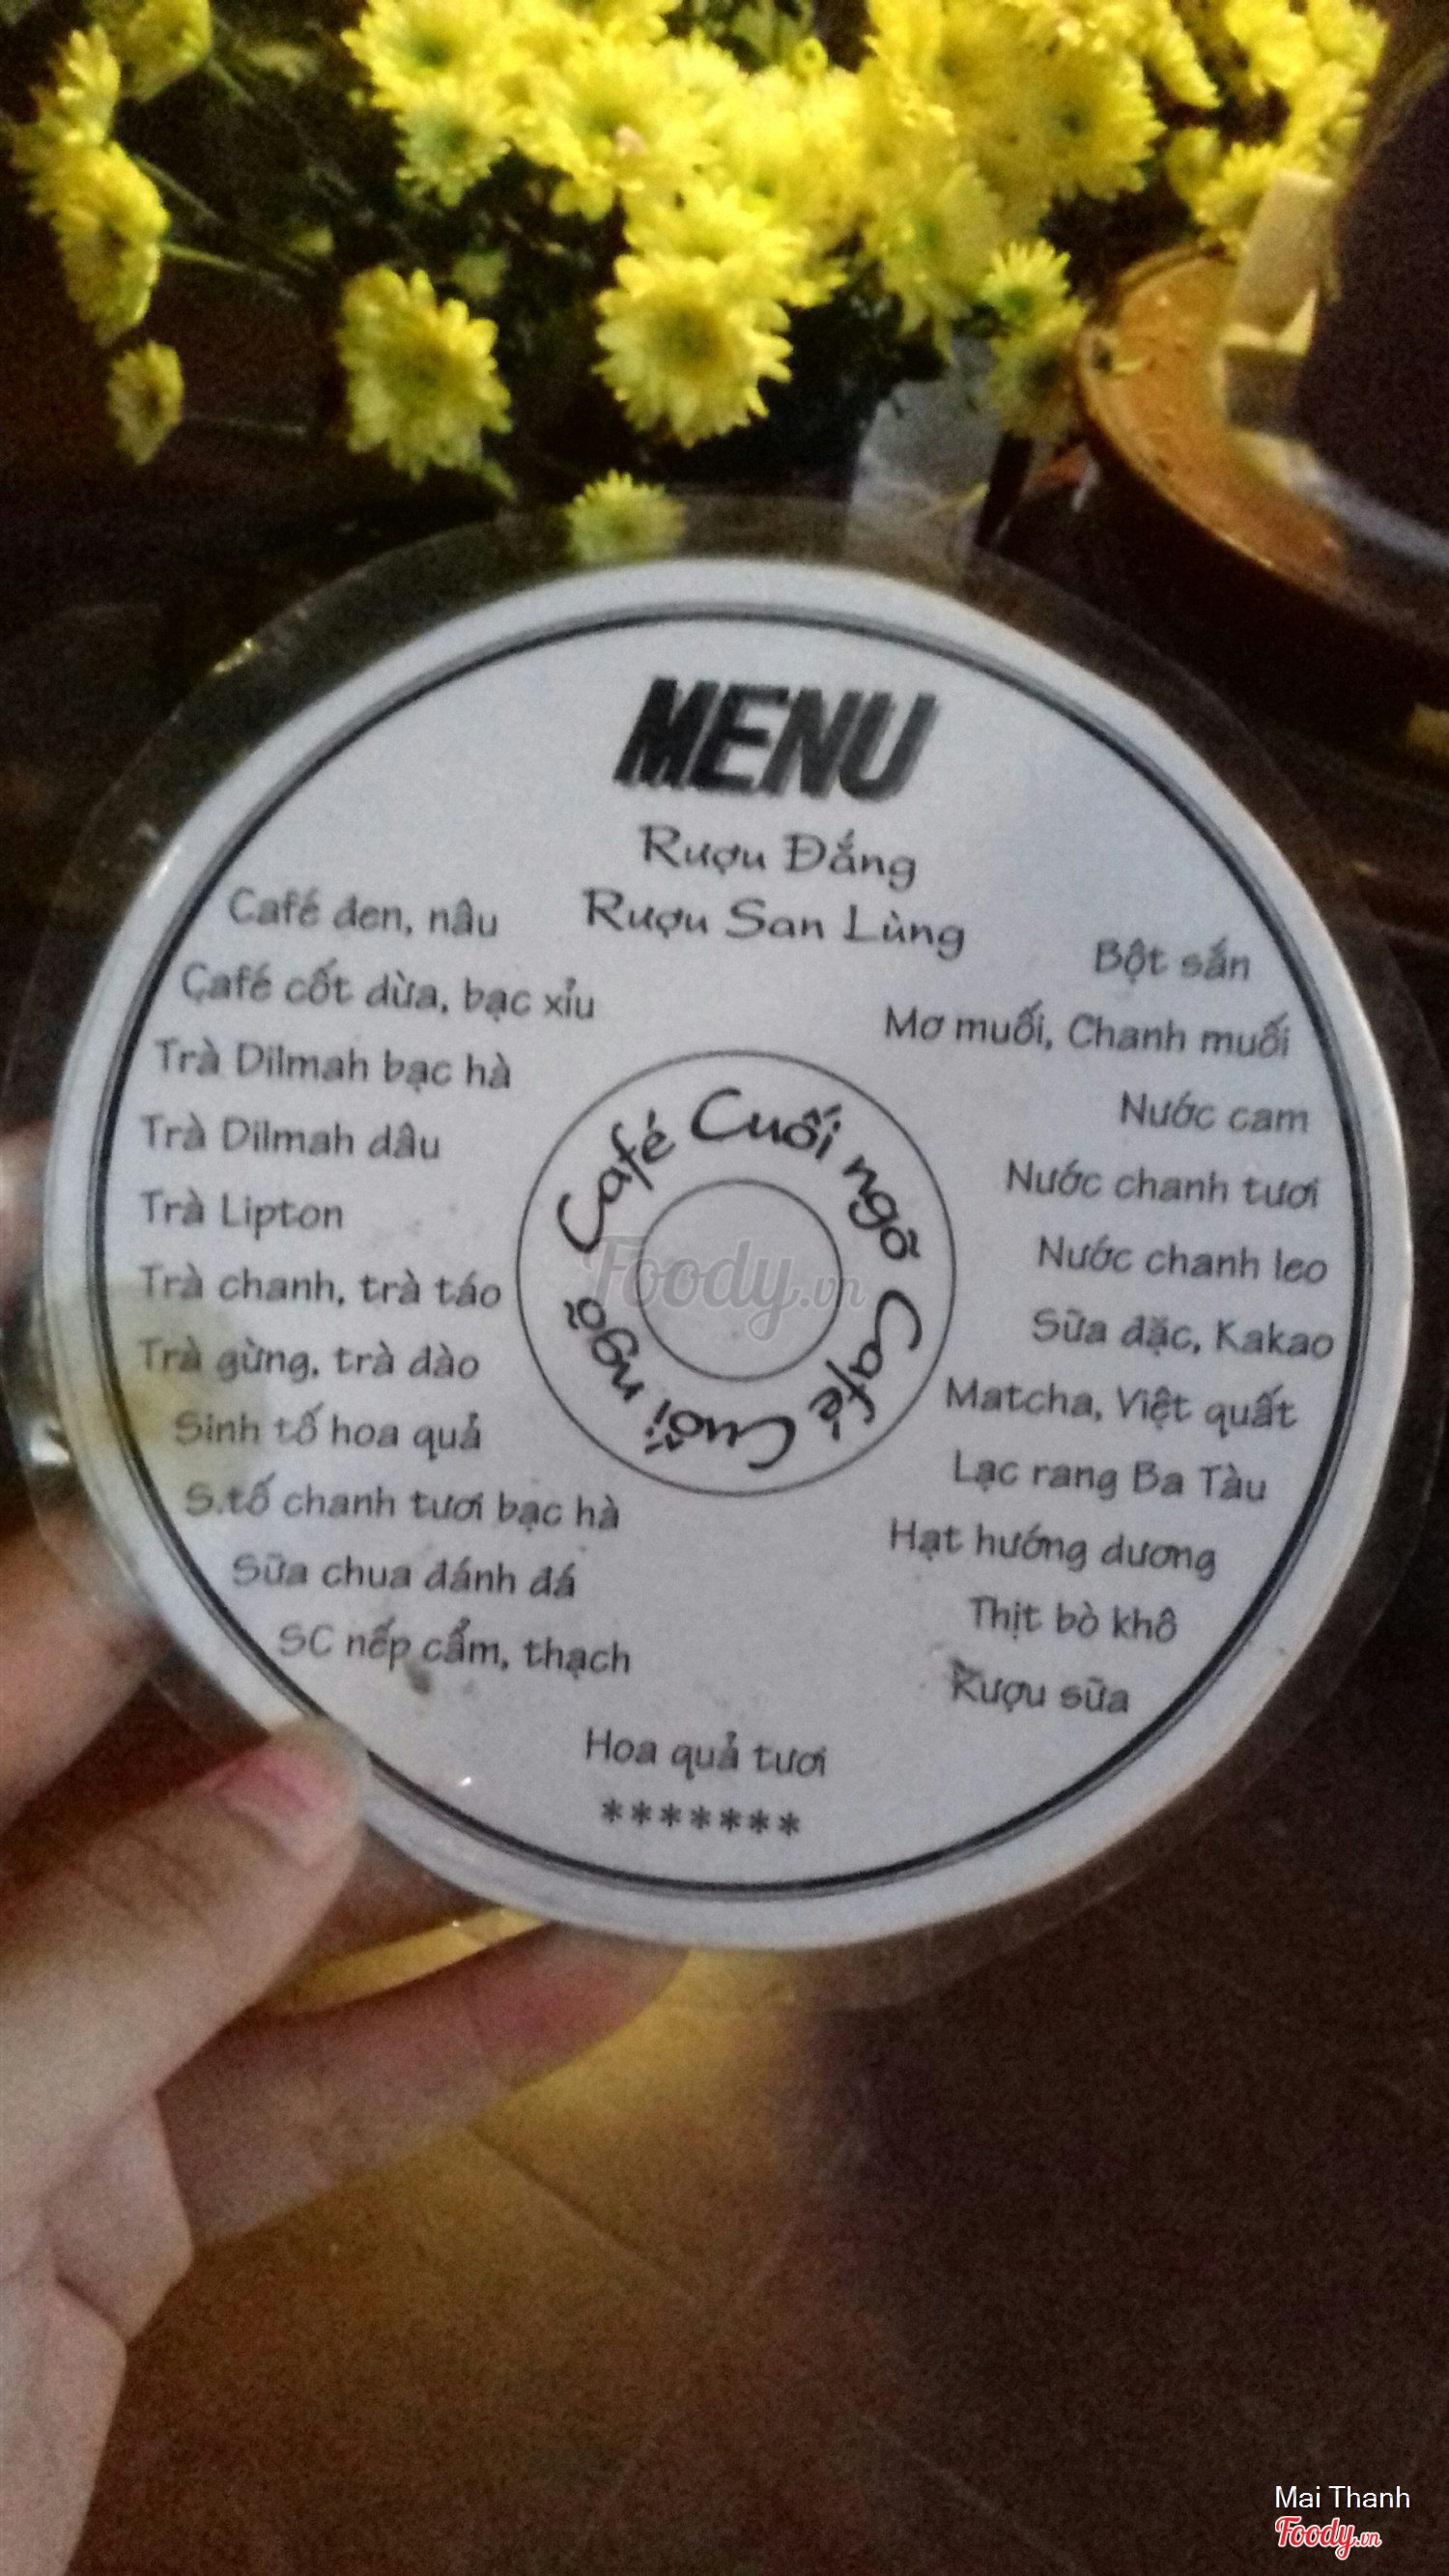 MENU
Rượu Đắng
Rượu San Lùng
Café đen, nâu
Café cốt dừa, bạc xỉu
Trà Dilmah bạc hà
Trà Dilmah dâu
Trà Lipton
Trà chanh, trà táo
Trà gừng, trà đào
Sinh tố hoa quả
S.tố chanh tươi bạc hà
Sữa chua đánh đá
SC nếp cẩm, thạch
Café Cuối ngõ Café Cuối ngõ
Foody.vn
Bột sắn
Mơ muối, Chanh muối
Nước cam
Nước chanh tươi
Nước chanh leo
Sữa đặc, Kakao
Matcha, Việt quất
Lạc rang Ba Tàu
Hạt hướng dương
Thịt bò khô
Rượu sữa
Hoa quả tươi
*******
Mai Thanh
Foody.vn